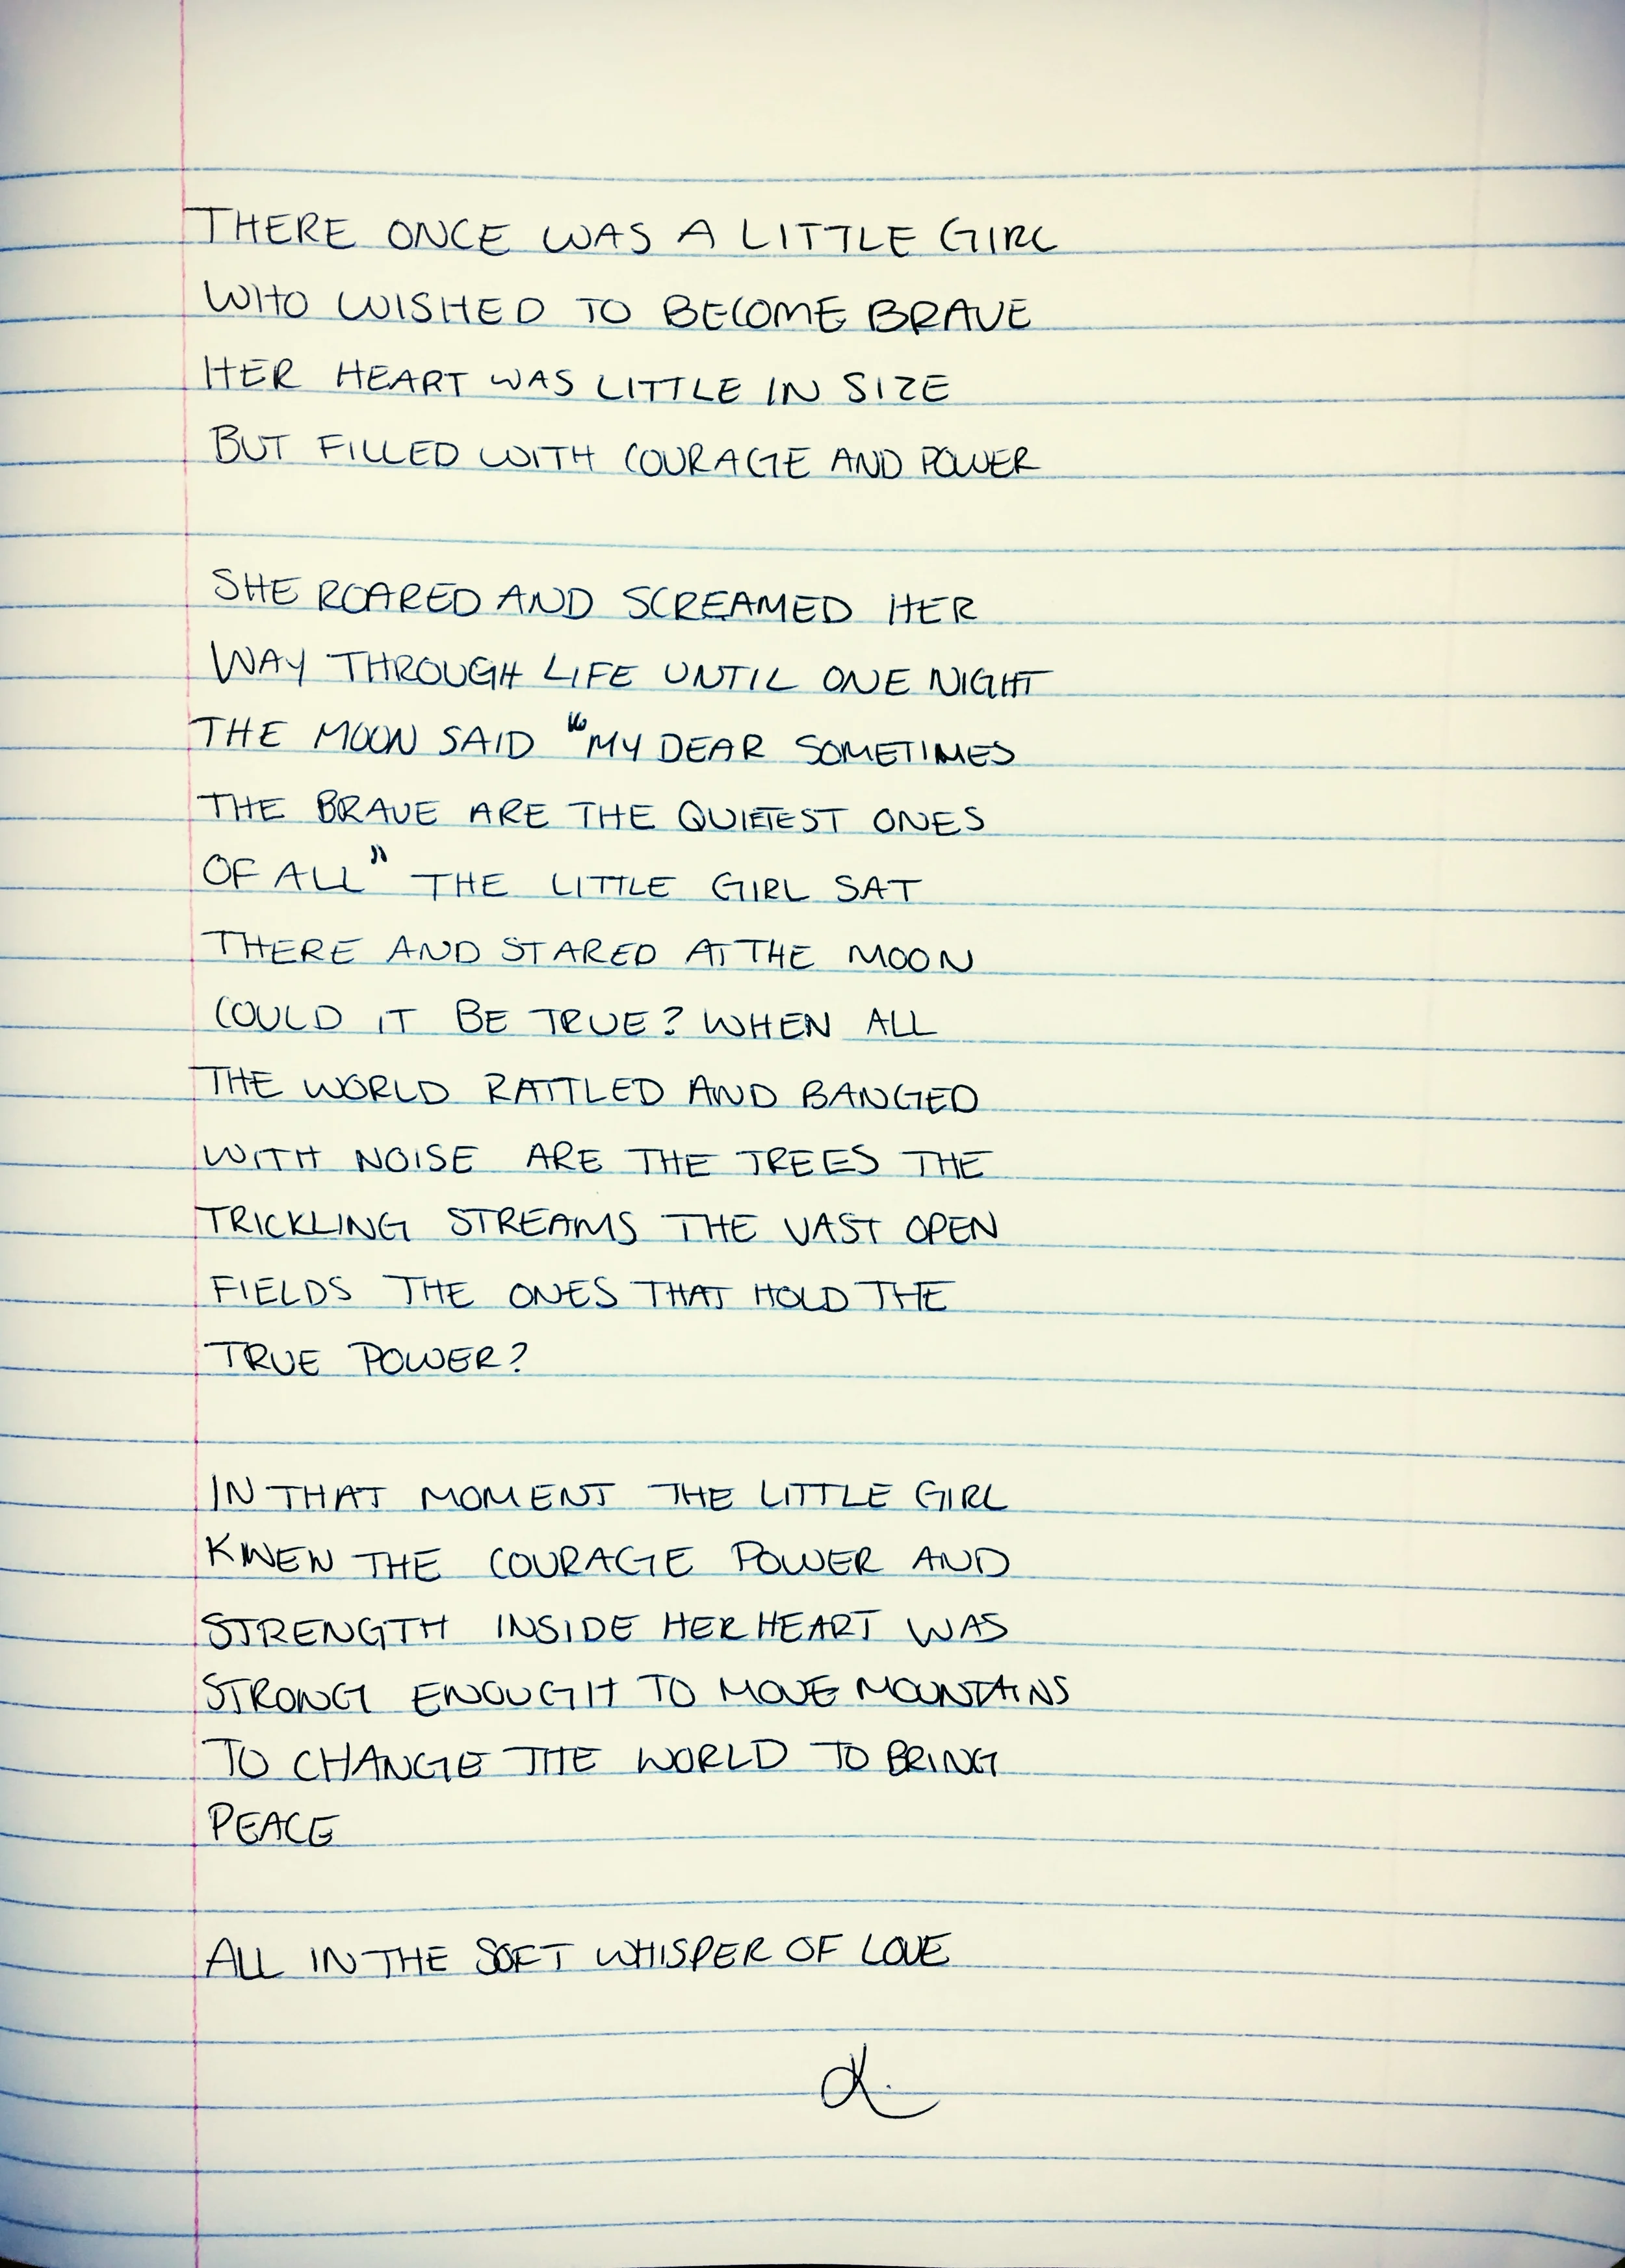 THERE ONCE WAS A LITTLE GIRL
WHO WISHED TO BECOME BRAVE
HER HEART WAS LITTLE IN SIZE
BUT FILLED WITH COURAGE AND POWER
SHE ROARED AND SCREAMED HER
WAY THROUGH LIFE UNTIL ONE NIGHT
THE MOON SAID "MY DEAR SOMETIMES
THE BRAVE ARE THE QUIETEST ONES
OF ALL" THE LITTLE GIRL SAT
THERE AND STARED AT THE MOON
COULD IT BE TRUE? WHEN ALL
THE WORLD RATTLED AND BANGED
WITH NOISE ARE THE TREES THE
TRICKLING STREAMS THE VAST OPEN
FIELDS THE ONES THAT HOLD THE
TRUE POWER?
IN THAT MOMENT THE LITTLE GIRL
KNEW THE COURAGE POWER AND
STRENGTH INSIDE HER HEART WAS
STRONG ENOUGH TO MOVE MOUNTAINS
TO CHANGE THE WORLD TO BRING
PEACE
ALL IN THE SOFT WHISPER OF LOVE